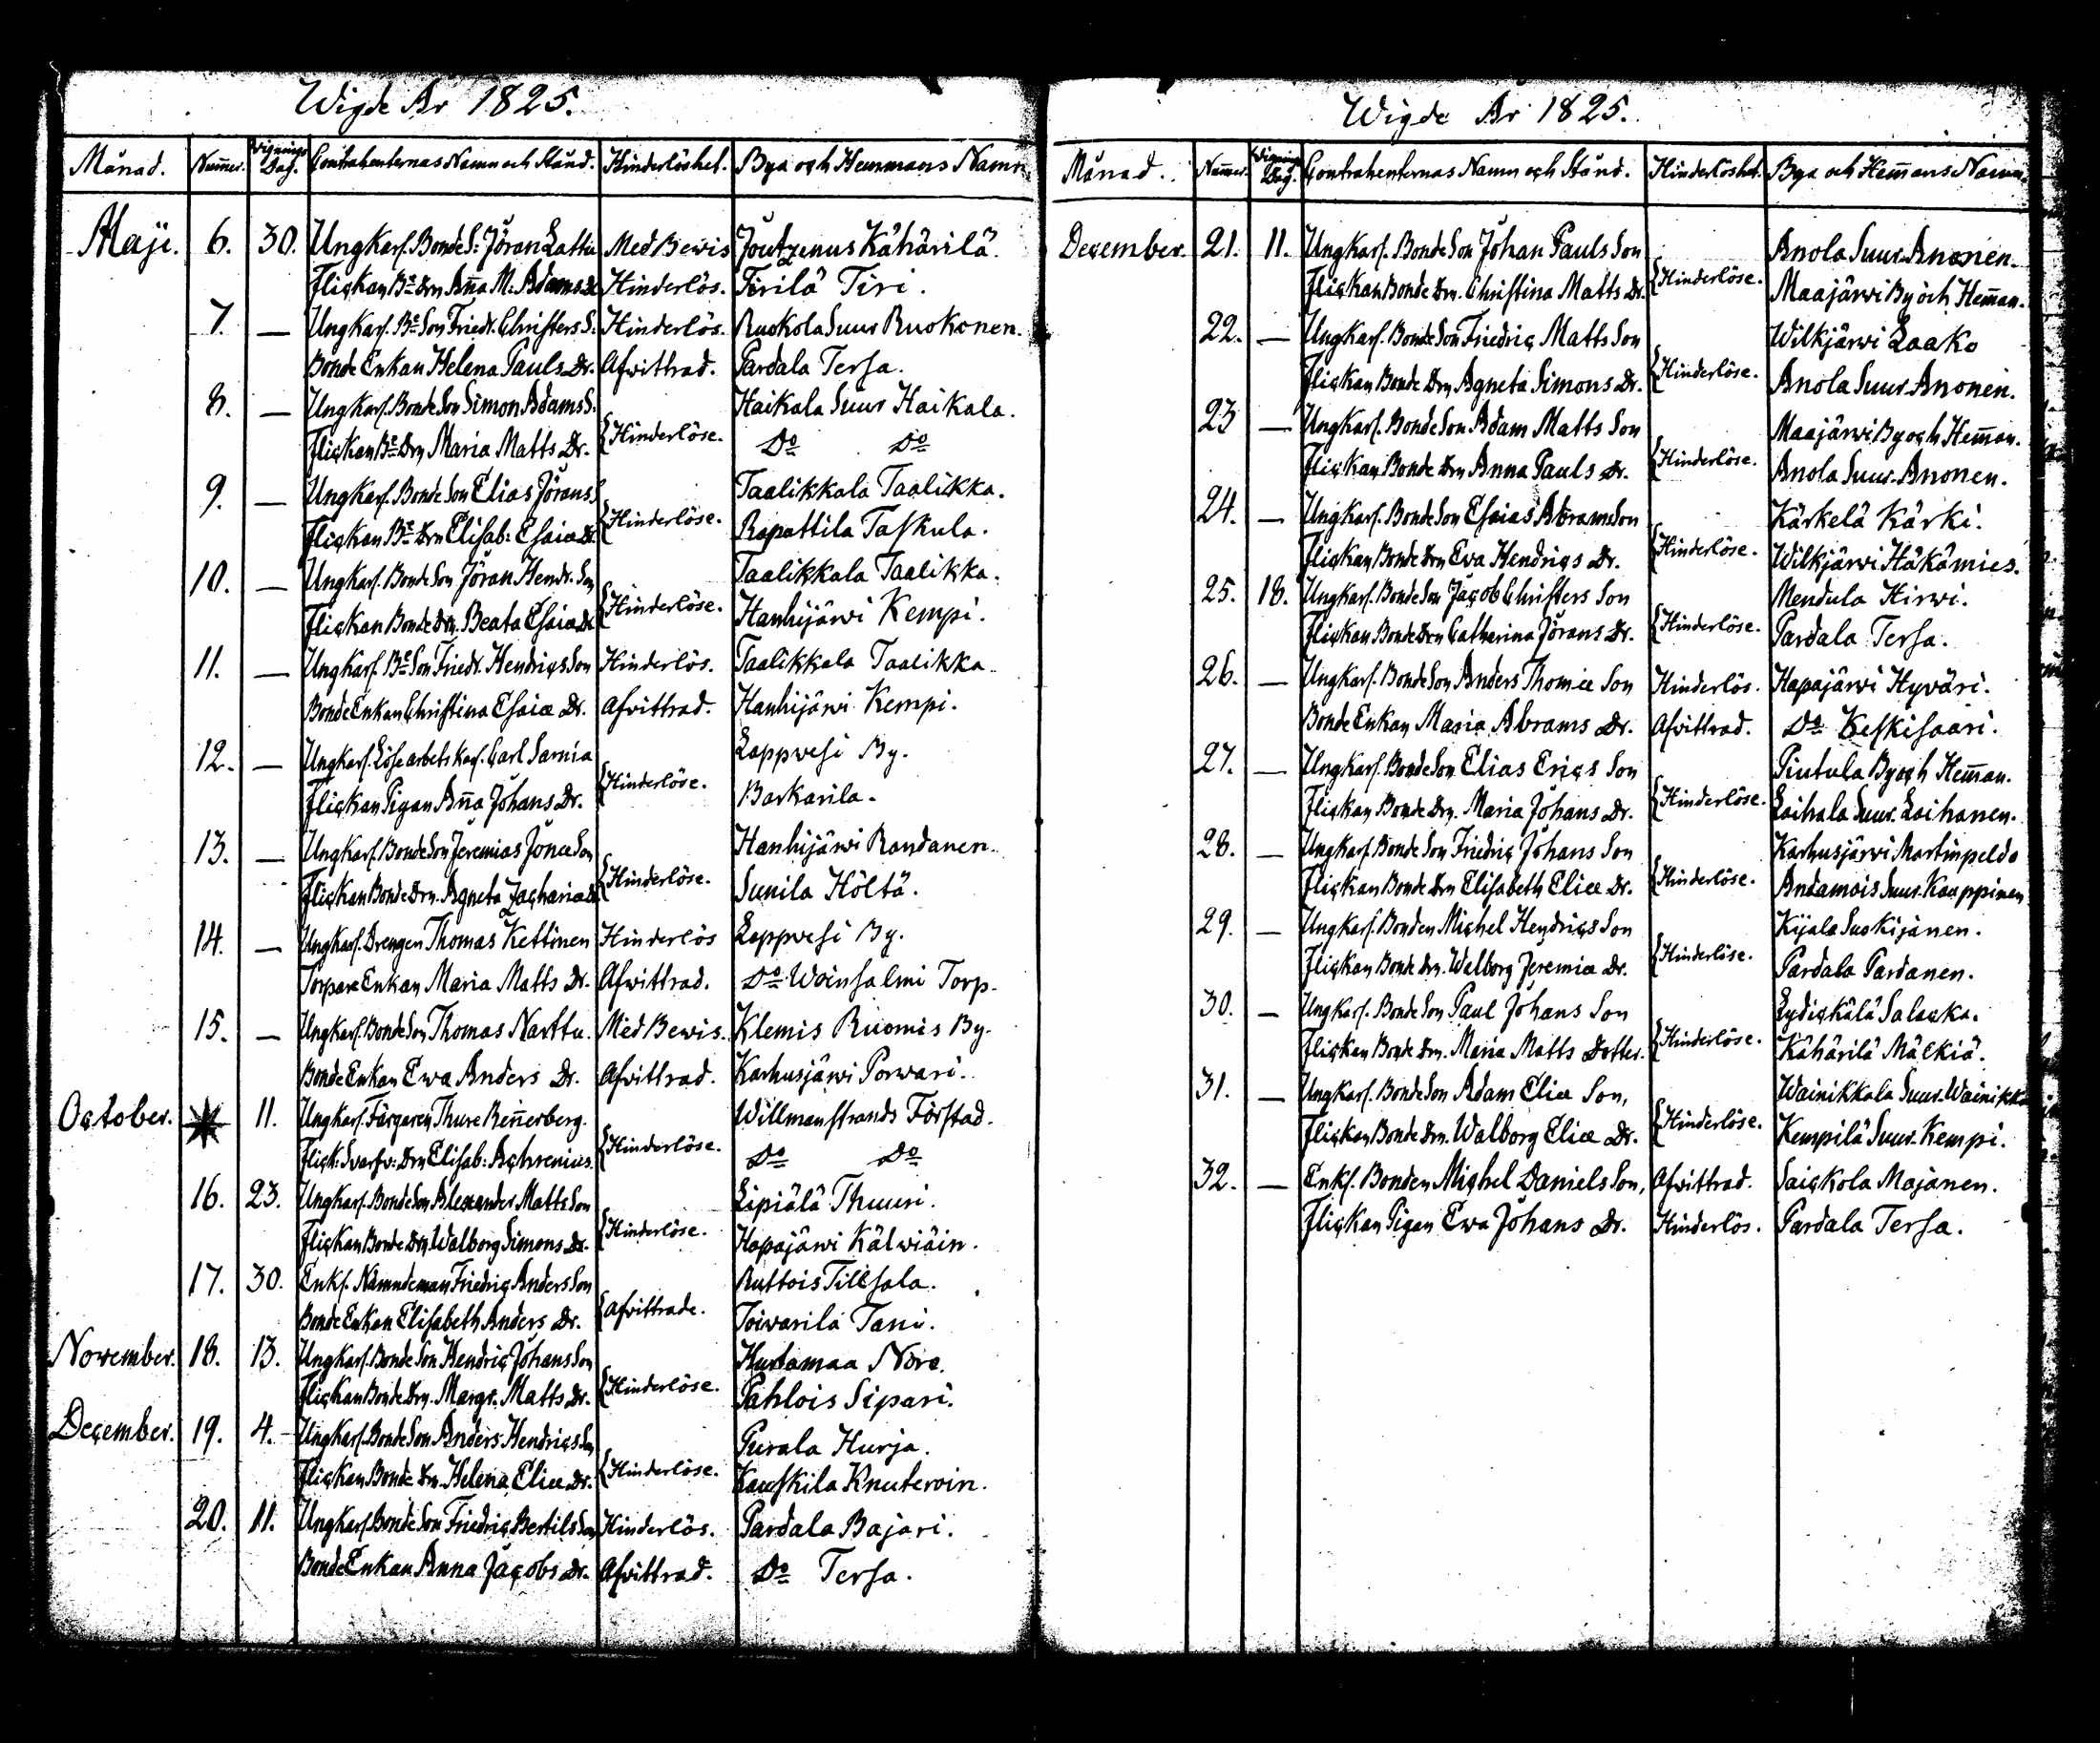 Wigde År 1825.
Månad. Num̄er. Wignings Dag. Contrahenternas Namn och Stånd. Hinderlöshet. Bya och Hemmans Namn
Maji. 6. 30. Ungkarl. Bonde S: Jöran Lattu Med Bewis Joutzenus Kähärilä.
Flickan Bde Drn An̄a M: Adams Dr Hinderlös. Tirilä Tiri.
7. — Ungkarl. Bde Son Friedr. Christers S. Hinderlös. Ruokola Suur Ruokonen.
Bonde Enkan Helena Pauls Dr. Afvittrad. Pardala Tersa.
8. — Ungkarl. Bonde Son Simon Adams S. Haikala Suur Haikala.
Flickan Bde Drn Maria Matts Dr. {Hinderlöse. Do Do
9. — Ungkarl. Bonde Son Elias Jörans S. Taalikkala Taalikka.
Flickan Bde Drn Elisab: Esaiæ Dr. {Hinderlöse. Rapattila Taskula.
10. — Ungkarl. Bonde Son Jöran Hendr. Son Taalikkala Taalikka.
Flickan Bonde Drn. Beata Esaiæ Dr {Hinderlöse. Hanhijärwi Kempi.
11. — Ungkarl. Bde Son Friedr. Hendrics Son Hinderlös. Taalikkala Taalikka.
Bonde Enkan Christina Esaiæ Dr. Afvittrad. Hanhijärwi Kempi.
12. — Ungkarl. Lösearbets karl. Carl Sarnia Lappvesi By.
Flickan Pigan An̄a Johans Dr. {Hinderlöse. Barkarila.
13. — Ungkarl. Bonde Son Jeremias Jonæ Son Hanhijärwi Randanen.
Flickan Bonde Drn. Agneta Zachariæ D {Hinderlöse. Sunila Höltä.
14. — Ungkarl. Drengen Thomas Kettönen Hinderlös Lappvesi By.
Torpare Enkan Maria Matts Dr. Afwittrad. Do Woinsalmi Torp.
15. — Ungkarl. Bonde Son Thomas Narttu. Med Bewis. Klemis Ruomis By.
Bonde Enkan Ewa Anders Dr. Afvittrad. Karhusjärwi Porwari.
October. 11. Ungkarl. Färgaren Thure Ren̄erberg. Willmanstrands Förstad.
Flick: Svarfv: Drn Elisab: Achrenius. {Hinderlöse. Do Do
16. 23. Ungkarl. Bonde Son Alexander Matts Son Lipiälä Thuuri.
Flickan Bonde Drn. Walborg Simons Dr. {Hinderlöse. Hapajärwi Kälwiäin.
17. 30. Enkl. Nämndeman Friedric Anders Son Ruttois Tillsala.
Bonde Enkan Elisabeth Anders Dr. {Afvittrade. Toiwarila Tani.
November. 18. 13. Ungkarl. Bonde Son Hendric Johans Son Hurtamaa Nore.
Flickan Bonde Drn. Margr. Matts Dr. {Hinderlöse. Pahlois Sipari.
December. 19. 4. Ungkarl. Bonde Son Anders Hendrics Son Purala Hurja.
Flickan Bonde Drn. Helena Eliæ Dr. {Hinderlöse. Kauskila Knutervin.
20. 11. Ungkarl. Bonde Son Friedric Bertils Son Hinderlös. Pardala Bajari.
Bonde Enkan Anna Jacobs Dr. Afvittrad. Do Tersa.
Wigde År 1825.
Månad. Num̄er. Wignings Dag. Contrahenternas Namn och Stånd. Hinderlöshet. Bya och Hem̄ans Namn.
December. 21. 11. Ungkarl. Bonde Son Johan Pauls Son Anola Suur-Anonen.
Flickan Bonde Drn. Christina Matts Dr. {Hinderlöse. Maajärwi By och Hem̄an.
22. — Ungkarl. Bonde Son Friedric Matts Son Wilkjärwi Laako
Flickan Bonde Drn Agneta Simons Dr. {Hinderlöse. Anola Suur-Anonen.
23 — Ungkarl. Bonde Son Adam Matts Son Maajärwi By och Hem̄an.
Flickan Bonde Drn Anna Pauls Dr. {Hinderlöse. Anola Suur-Anonen.
24. — Ungkarl. Bonde Son Esaias Abrams Son Kärkelä Kärki.
Flickan Bonde Drn Ewa Hendrics Dr. {Hinderlöse. Wilkjärwi Häkämies.
25. 18. Ungkarl. Bonde Son Jacob Christers Son Mendula Hirwi.
Flickan Bonde Drn Catharina Jörans Dr. {Hinderlöse. Pardala Tersa.
26. — Ungkarl. Bonde Son Anders Thomæ Son Hinderlös. Hapajärwi Hyväri.
Bonde Enkan Maria Abrams Dr. Afvittrad. Do Keskisaari.
27. — Ungkarl. Bonde Son Elias Erics Son Piutula By och Hem̄an.
Flickan Bonde Drn. Maria Johans Dr. {Hinderlöse. Laihala Suur-Laihanen.
28. — Ungkarl. Bonde Son Friedric Johans Son Karhusjärwi Martinpeldo
Flickan Bonde Drn Elisabeth Eliæ Dr. {Hinderlöse. Andamois Suur-Kauppinen
29. — Ungkarl. Bonden Michel Hendrics Son Kijala Suskijanen.
Flickan Bonde Drn. Walborg Jeremiæ Dr. {Hinderlöse. Pardala Pardanen.
30. — Ungkarl. Bonde Son Paul Johans Son Lydickälä Salacka.
Flickan Bonde Drn. Maria Matts Dotter. {Hinderlöse. Kähärilä Mälkiä.
31. — Ungkarl. Bonde Son Adam Eliæ Son, Wainikkala Suur-Wainikka
Flickan Bonde Drn. Walborg Eliæ Dr. {Hinderlöse. Kempilä Suur-Kempi.
32. — Enkl. Bonden Michel Daniels Son, Afvittrad. Saickola Majanen.
Flickan Pigan Ewa Johans Dr. Hinderlös. Pardala Tersa.